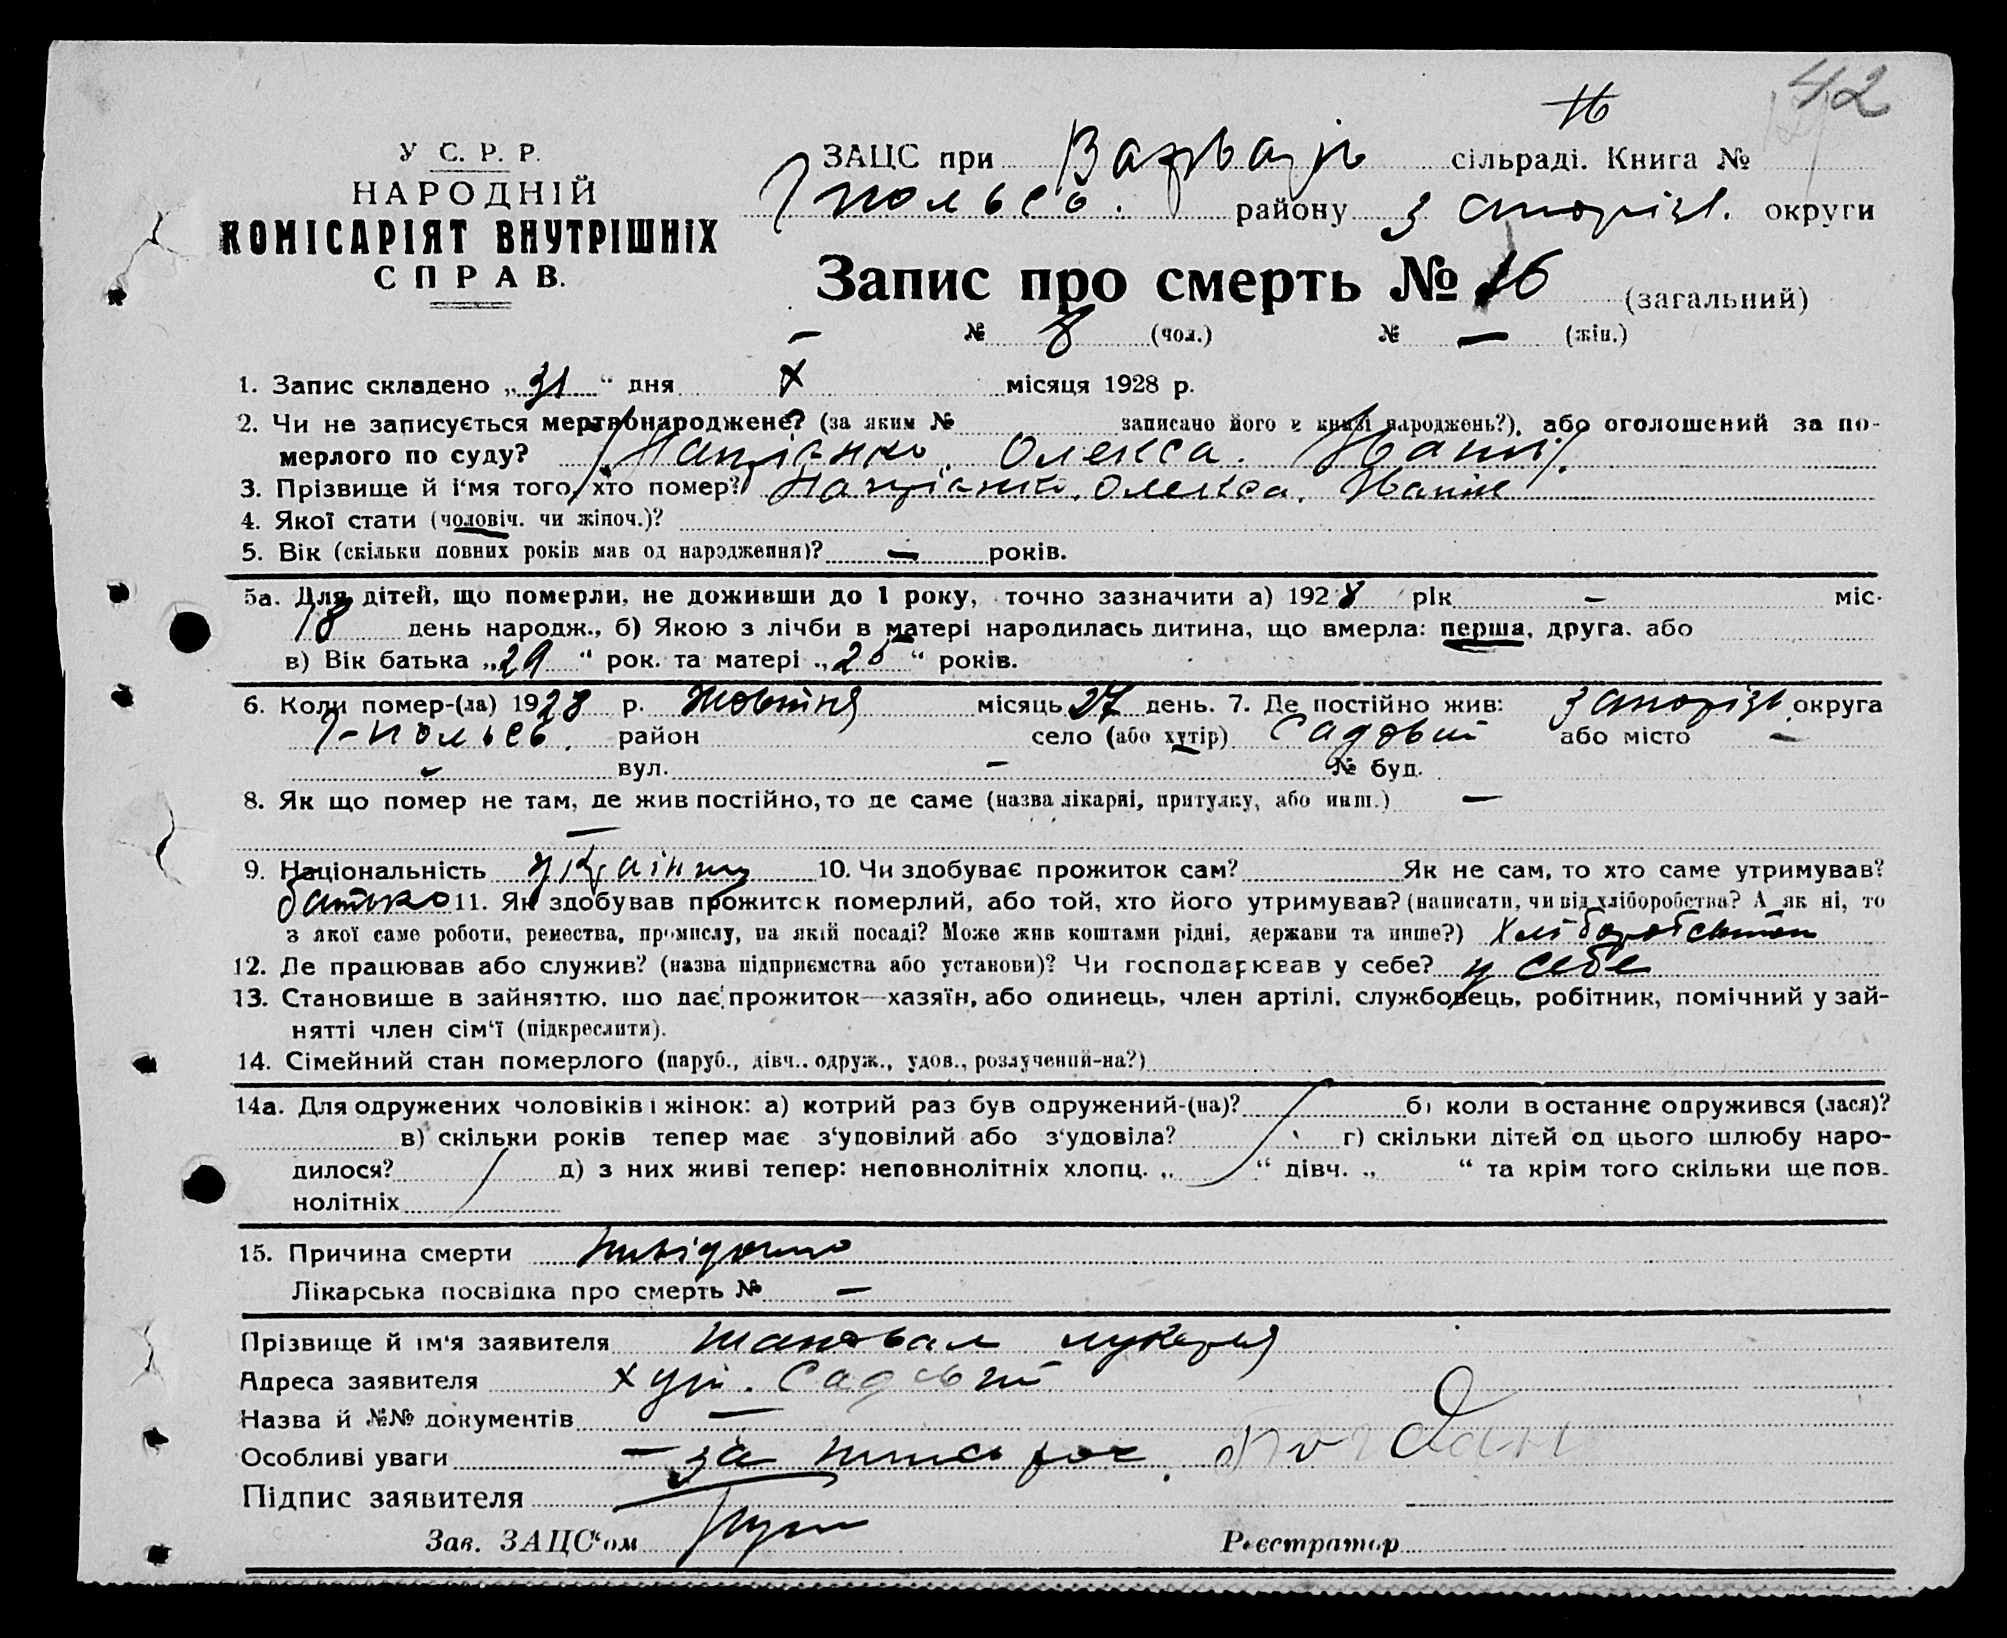 42
16
У С. Р. Р.
НАРОДНІЙ
КОМІСАРІЯТ ВНУТРІШНІХ
СПРАВ.
ЗАЦС при сільраді. Книга №
району Запоріз. округи
Запис про смерть № 16 (загальний)
№ 8 (чол.) № — (жін.)
1. Запис складено „31“ дня X місяця 1928 р.
2. Чи не записується мертвонароджене? (за яким № записано його в книзі народжень?), або оголошений за по-
мерлого по суду? Олекса
3. Прізвище й і‘мя того, хто помер? Олекса
4. Якої стати (чоловіч. чи жіноч.)?
5. Вік (скільки повних років мав од народження)? — років.
5а. Для дітей, що померли, не доживши до 1 року, точно зазначити а) 1928 рік — міс.
18 день народж., б) Якою з лічби в матері народилась дитина, що вмерла: перша, друга. або
в) Вік батька „29“ рок. та матері „20“ років.
6. Коли помер-(ла) 1928 р. Жовтня місяць 27 день. 7. Де постійно жив: Запорізь округа
район село (або хутір) Садовий або місто —
вул. — № буд.
8. Як що помер не там, де жив постійно, то де саме (назва лікарні, притулку, або инш.) —
—
9. Національність 10. Чи здобуває прожиток сам? Як не сам, то хто саме утримував?
батько 11. Як здобував прожиток померлий, або той, хто його утримував? (написати, чи від хліборобства? А як ні, то
з якої саме роботи, ремества, промислу, на якій посаді? Може жив коштами рідні, держави та инше?) Хліборобством
12. Де працював або служив? (назва підприємства або установи)? Чи господарював у себе? у себе
13. Становище в зайняттю, що дає прожиток—хазяїн, або одинець, член артілі, службовець, робітник, помічний у зай-
нятті член сім‘ї (підкреслити).
14. Сімейний стан померлого (паруб., дівч., одруж., удов., розлучений-на?)
14а. Для одружених чоловіків і жінок: а) котрий раз був одружений-(на)? б) коли в останнє одружився (лася)?
в) скільки років тепер має з‘удовілий або з‘удовіла? г) скільки дітей од цього шлюбу наро-
дилося? д) з них живі тепер: неповнолітніх хлопц. „ “ дівч. „ “ та крім того скільки ще пов-
нолітніх
15. Причина смерти невідомо
Лікарська посвідка про смерть № —
Прізвище й ім‘я заявителя Шаповал
Адреса заявителя хут. Садовий
Назва й №№ документів —
Особливі уваги —
Підпис заявителя
Зав. ЗАЦС‘ом Реєстратор